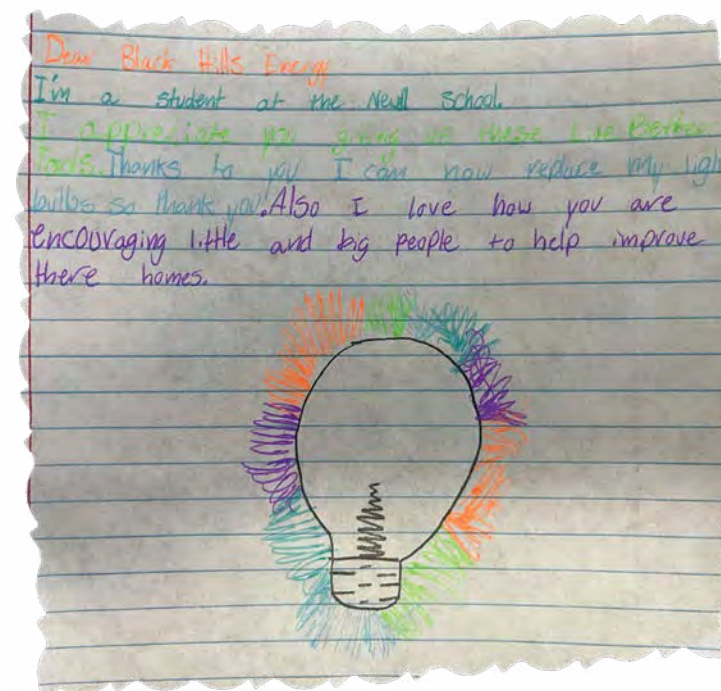 Dear Black Hills Energy
I'm a student at the Newll School.
I appreciate you giving us these Live Better
Tools. Thanks to you I can now replace my light
bulbs so thank you. Also I love how you are
encouraging little and big people to help improve
there homes.